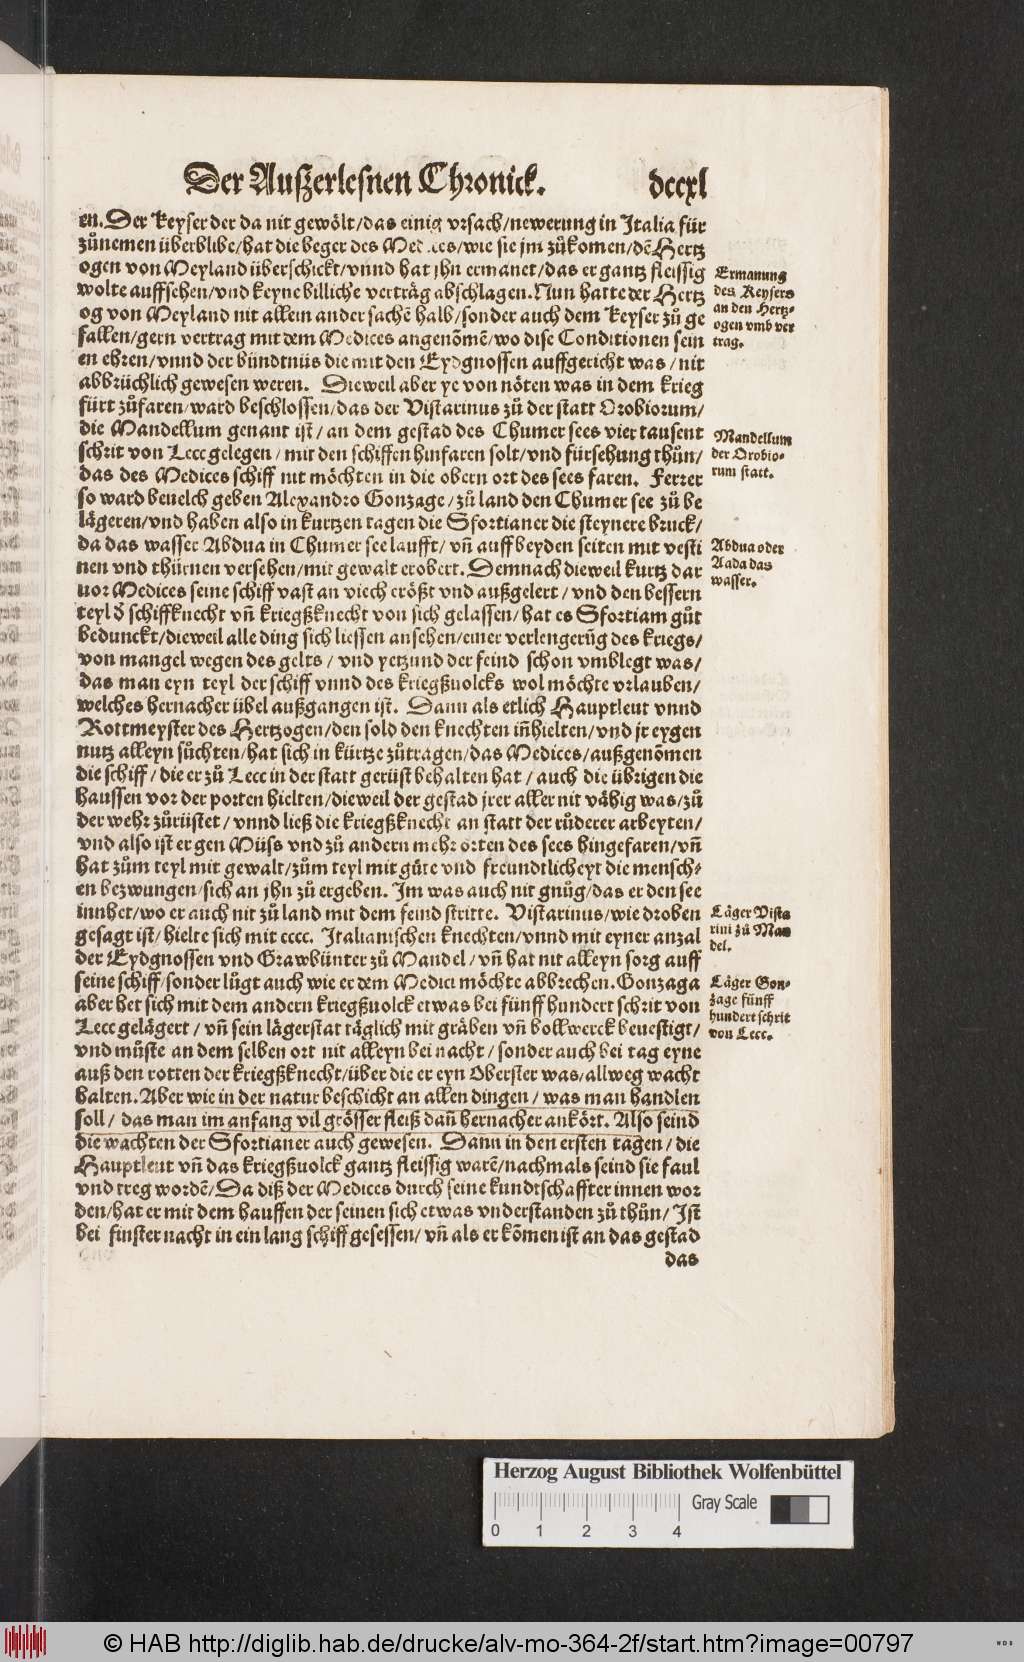 Der Außzerlesnen Chronick.
dccxl
en. Der Keyser der da nit gewölt/das einig vrsach/newerung in Italia für
zůnemen überblibe/hat die beger des Med ces/wie sie jm zůkomen/dē Hertz
ogen von Meyland überschickt/vnnd hat jhn ermanet/das er gantz fleissig
wolte auffsehen/vnd keyne billiche verträg abschlagen. Nun hatte der Hertz
og von Meyland nit allein ander sachē halb/sonder auch dem Keyser zů ge
fallen/gern vertrag mit dem Medices angenōmē/wo dise Conditionen sein
en ehren/vnnd der bündtnüs die mit den Eydgnossen auffgericht was/nit
abbrüchlich gewesen weren. Dieweil aber ye von nöten was in dem krieg
fürt zůfaren/ward beschlossen/das der Vistarinus zů der statt Orobiorum/
die Mandellum genant ist/an dem gestad des Chumer sees vier tausent
schrit von Lecc gelegen/mit den schiffen hinfaren solt/vnd fürsehung thůn/
das des Medices schiff nit möchten in die obern ort des sees faren. Ferrer
so ward beuelch geben Alexandro Gonzage/zů land den Chumer see zů be
lägeren/vnd haben also in kurtzen tagen die Sfortianer die steynere bruck/
da das wasser Abdua in Chumer see laufft/vñ auff beyden seiten mit vesti
nen vnd thürnen versehen/mit gewalt erobert. Demnach dieweil kurtz dar
uor Medices seine schiff vast an viech erößt vnd außgelert/vnd den bessern
teyl ď schiffknecht vñ kriegßknecht von sich gelassen/hat es Sfortiam gůt
bedunckt/dieweil alle ding sich liessen ansehen/einer verlengerūg des kriegs/
von mangel wegen des gelts/vnd yetzund der feind schon vmblegt was/
das man eyn teyl der schiff vnnd des kriegßuolcks wol möchte vrlauben/
welches hernacher übel außgangen ist. Dann als etlich Hauptleut vnnd
Rottmeyster des Hertzogen/den sold den knechten iñhielten/vnd jr eygen
nutz alleyn sůchten/hat sich in kürtze zůtragen/das Medices/außgenōmen
die schiff/die er zů Lecc in der statt gerüst behalten hat/auch die übrigen die
haussen vor der porten hielten/dieweil der gestad jrer aller nit vähig was/zů
der wehr zůrüstet/vnnd ließ die kriegßknecht an statt der růderer arbeyten/
vnd also ist er gen Müss vnd zů andern mehr orten des sees hingefaren/vñ
hat zům teyl mit gewalt/zům teyl mit güte vnd freundtlicheyt die mensch-
en bezwungen/sich an jhn zů ergeben. Im was auch nit gnůg/das er den see
innhet/wo er auch nit zů land mit dem feind stritte. Vistarinus/wie droben
gesagt ist/hielte sich mit cccc. Italianischen knechten/vnnd mit eyner anzal
der Eydgnossen vnd Grawbünter zů Mandel/vñ hat nit alleyn sorg auff
seine schiff/sonder lůgt auch wie er dem Medici möchte abbrechen. Gonzaga
aber het sich mit dem andern kriegßuolck etwas bei fünff hundert schrit von
Lecc gelägert/vñ sein lägerstat täglich mit gräben vñ bollwerck beuestigt/
vnd můste an dem selben ort nit alleyn bei nacht/sonder auch bei tag eyne
auß den rotten der kriegßknecht/über die er eyn Oberster was/allweg wacht
halten. Aber wie in der natur beschicht an allen dingen/was man handlen
soll/das man im anfang vil grösser fleiß dañ hernacher ankört. Also seind
die wachten der Sfortianer auch gewesen. Dann in den ersten tagen/die
Hauptleut vñ das kriegßuolck gantz fleissig warē/nachmals seind sie faul
vnd treg wordē/Da diß der Medices durch seine kundtschaffter innen wor
den/hat er mit dem hauffen der seinen sich etwas vnderstanden zů thůn/Ist
bei finster nacht in ein lang schiff gesessen/vñ als er kōmen ist an das gestad
das
Ermanung
des Keysers
an den Hertz-
ogen vmb ver
trag.
Mandellum
der Orobio-
rum statt.
Abdua oder
Aada das
wasser.
Läger Vista
rini zů Man
del.
Läger Gon-
zage fünff
hundert schrit
von Lecc.
Herzog August Bibliothek Wolfenbüttel
Gray Scale
0 1 2 3 4
© HAB http://diglib.hab.de/drucke/alv-mo-364-2f/start.htm?image=00797